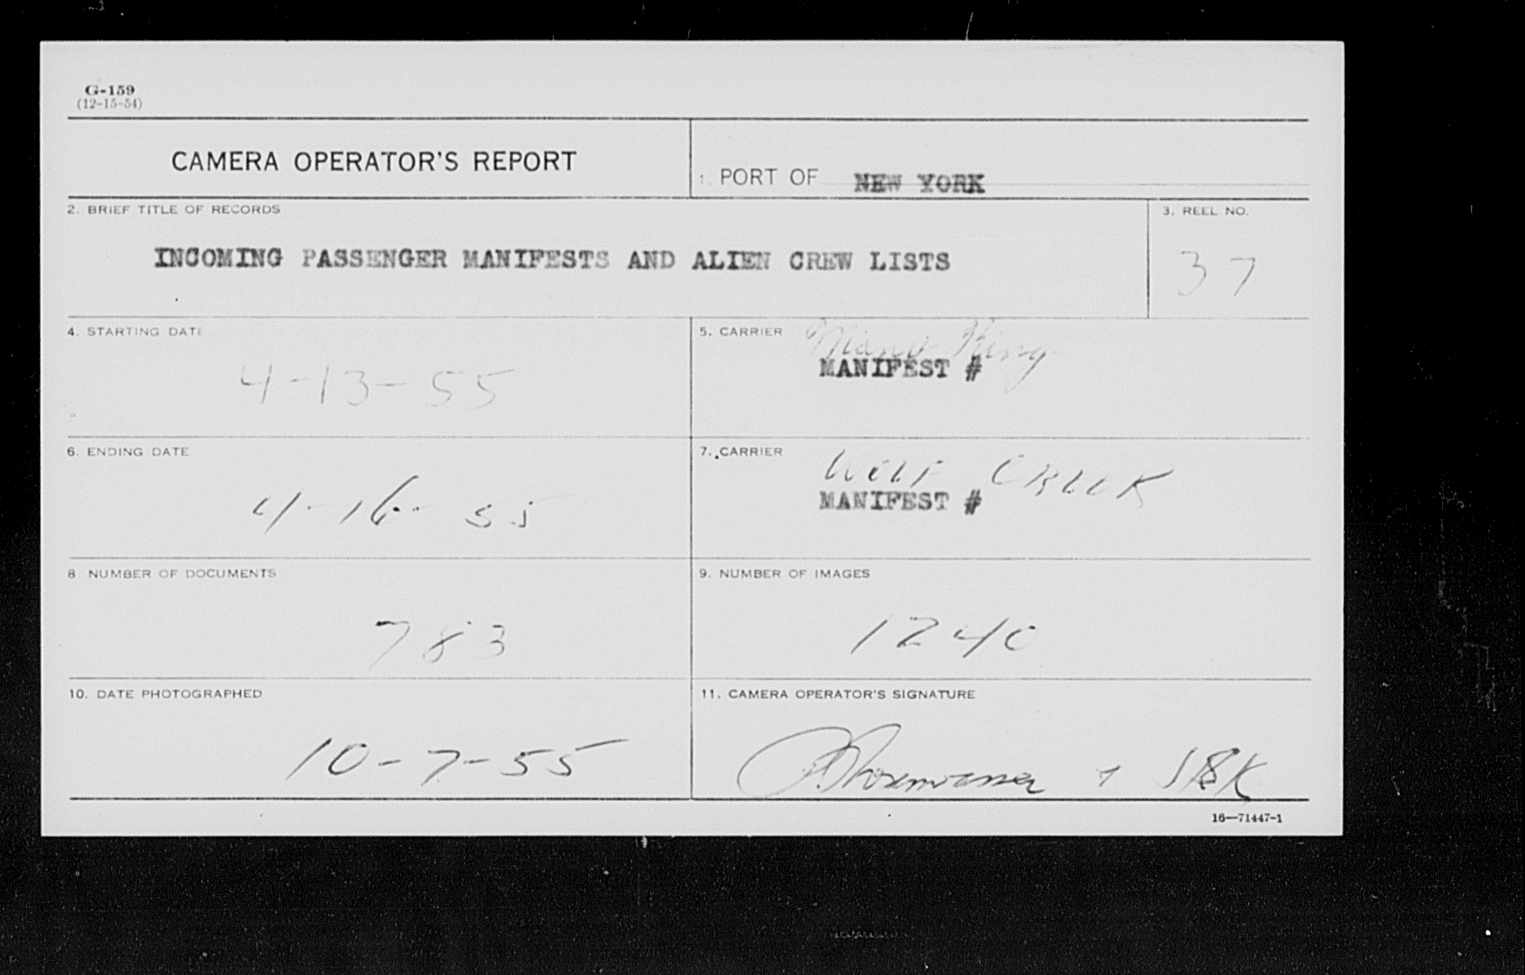 G-159
(12-15-54)
CAMERA OPERATOR'S REPORT
1. PORT OF NEW YORK
2. BRIEF TITLE OF RECORDS
INCOMING PASSENGER MANIFESTS AND ALIEN CREW LISTS
3. REEL NO.
37
4. STARTING DATE
4-13-55
5. CARRIER
King
MANIFEST #
6. ENDING DATE
4-16-55
7. CARRIER
Wolf Creek
MANIFEST #
8 NUMBER OF DOCUMENTS
783
9. NUMBER OF IMAGES
1240
10. DATE PHOTOGRAPHED
10-7-55
11. CAMERA OPERATOR'S SIGNATURE
16—71447-1